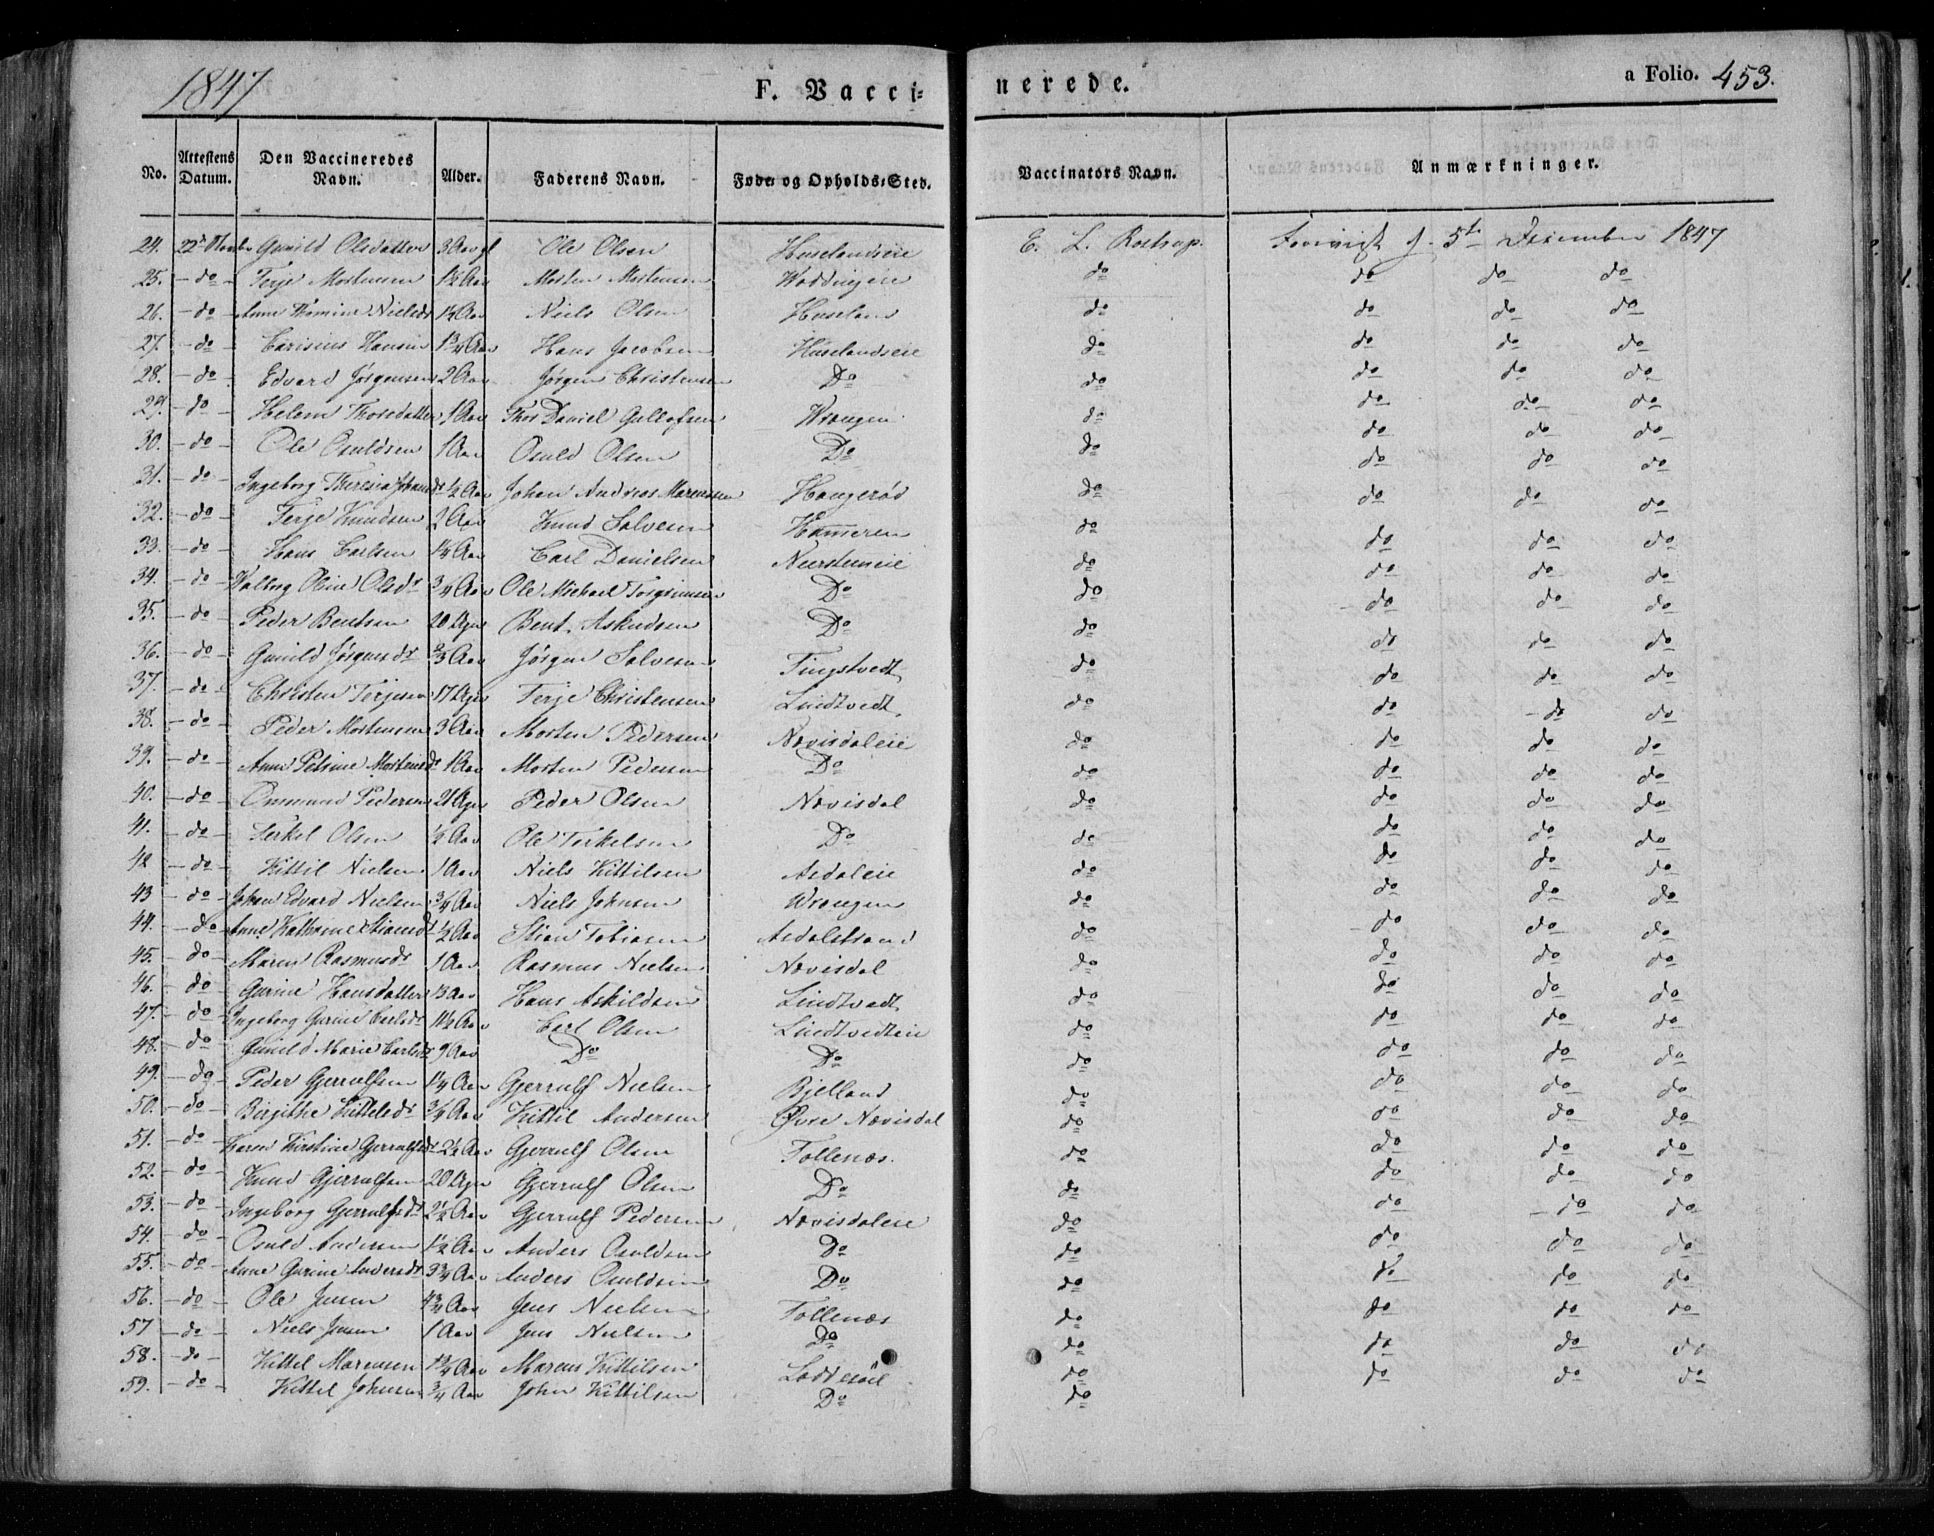 1847 F. Vaccinerede. a Folio. 453.
No. Attestens Datum. Den Vaccineredes Navn. Alder. Faderens Navn. Føde- og Opholds-Sted. Vaccinators Navn. Anmærkninger.
24. Gunild Olsdatter 3 Aar Ole Olsen Huselandseie E. L. Rostrup. 5te December 1847
25. do Terje Mortensen 1½ Aar Morten Mortensen do do do do
26. do Anne Thomine Nielsd. Aar Niels Olsen Huseland do do do do
27. do Hansen 1¾ Aar Hans Jacobsen Huselandseie do do do do
28. do Edvard Jørgensen 2 Aar Jørgen Christensen Do do do do do
29. do Thorsdatter 1 Aar Thor Daniel Wrangen do do do do
30. do Ole Osuldsen 1 Aar Osuld Olsen Do do do do do
31. do Ingeborg Theresia ½ Aar Johan Andreas Haugerød do do do do
32. do Terje Knudsen 2 Aar Knud Salvesen Hammeren do do do do
33. do Hans Carlsen 1¼ Aar Carl Danielsen do do do do
34. do Olsdr ¾ Aar Ole Michael Torgrimsen Do do do do do
35. do Peder Bentsen 20 Uger Bent Do do do do do
36. do Gunild Jørgensdr Aar Jørgen Salvesen Tingstvedt do do do do
37. do Christen Terjesen 17 Uger Terje Christensen Lindtvedt do do do do
38. do Peder Mortensen 3 Aar Morten Pedersen Nævisdaleie do do do do
39. do Anne Petrine Mortensdr 1 Aar Morten Pedersen Do do do do do
40. do Ommund Pedersen 21 Uger Peder Olsen Nævisdal do do do do
41. do Terkel Olsen ½ Aar Ole Terkelsen Do do do do do
42 do Kittil Nielsen 1 Aar Niels Kittilsen Asdaleie do do do do
43 do Johan Edvard Nielsen ¾ Aar Niels Johnsen Wrangen do do do do
44. do Anne Kathrine Stiansdr ½ Aar Stian Tobiasen Asdalstrand do do do do
45. do Maren Rasmusdr 1 Aar Rasmus Nielsen Nævisdal do do do do
46. do Gurine Hansdatter 13 Aar Hans Askildsen Lindtvedt do do do do
47. do Ingeborg Gurine Carlsdr 11½ Aar Carl Olsen Lindtvedteie do do do do
48. do Gunild Marie Carlsdr 9 Aar Do Do do do do do
49. do Peder Gjerulfsen 1¼ Aar Gjerrulf Nielsen Bjelland do do do do
50. do Birgithe Kittelsdr ¾ Aar Kittil Andersen Øvre Nævisdal do do do do
51. do Karen Kirstine Gjerrulfsdr 2½ Aar Gjerrulf Olsen Follenæs. do do do do
52. do Knud Gjerrulfsen 20 Uger Gjerrulf Olsen Do do do do do
53. do Ingeborg Gjerrulfsdr 2½ Aar Gjerrulf Pedersen Nævisdaleie do do do do
54. do Osuld Andersen 1½ Aar Anders Osuldsen Do do do do do
55. do Anne Gurine Andersdr 3¾ Aar Anders Osuldsen Do do do do do
56. do Ole Jensen 4¾ Aar Jens Nielsen Follenæs do do do do
57 do Niels Jensen 1 Aar Jens Nielsen Do do do do do
58. do Kittel Marcusen 1¾ Aar Marcus Kittilsen do do do do
59. do Kittel Johnsen ¾ Aar John Kittilsen Do do